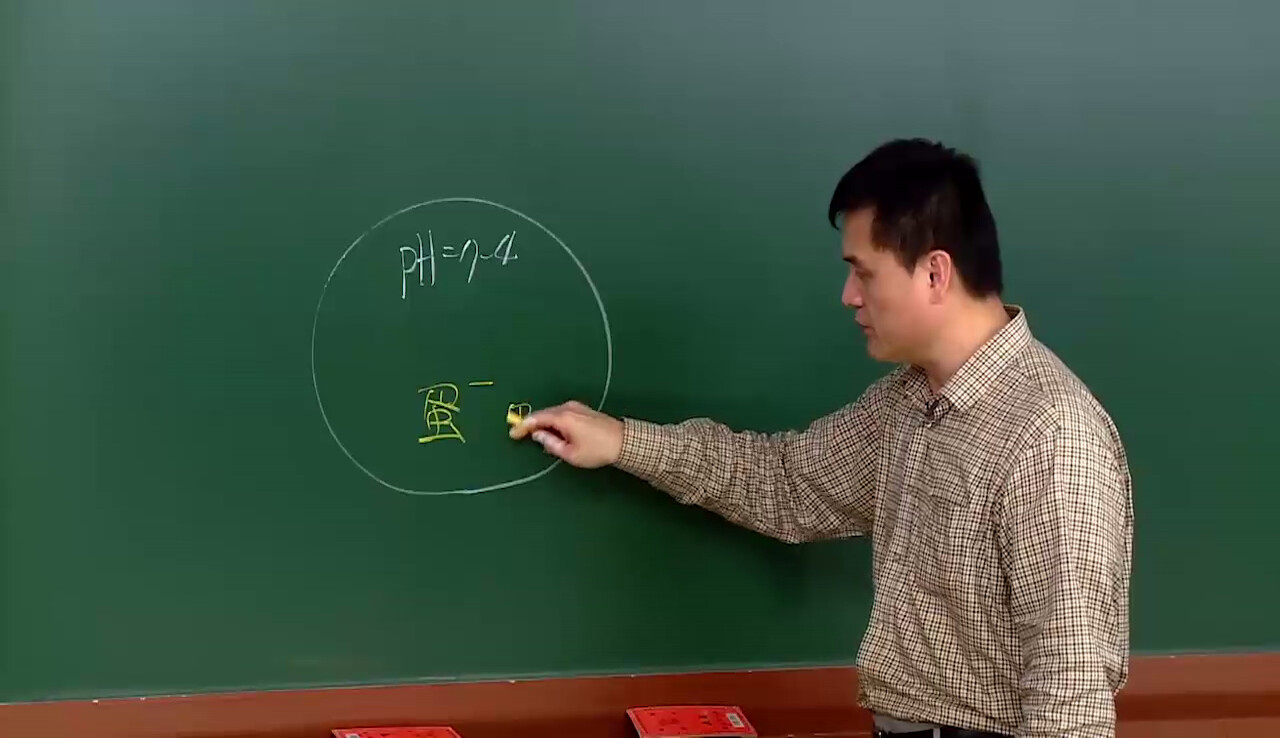 pH=7.4
蛋⁻